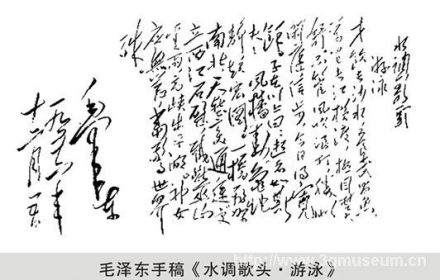 水调歌头
游泳
才饮长沙水又食武昌鱼
万里长江横渡极目楚天
舒不管风吹浪打胜似
闲庭信步今日得宽
馀子在川上曰逝者如斯
夫风樯动龟蛇
静起宏图一桥飞架
南北天堑变通途更
立西江石壁截断巫山
云雨高峡出平湖神女
应无恙当惊世界
殊
毛泽东
一九五六年
十二月五日
毛泽东手稿《水调歌头·游泳》
www.3gmuseum.cn